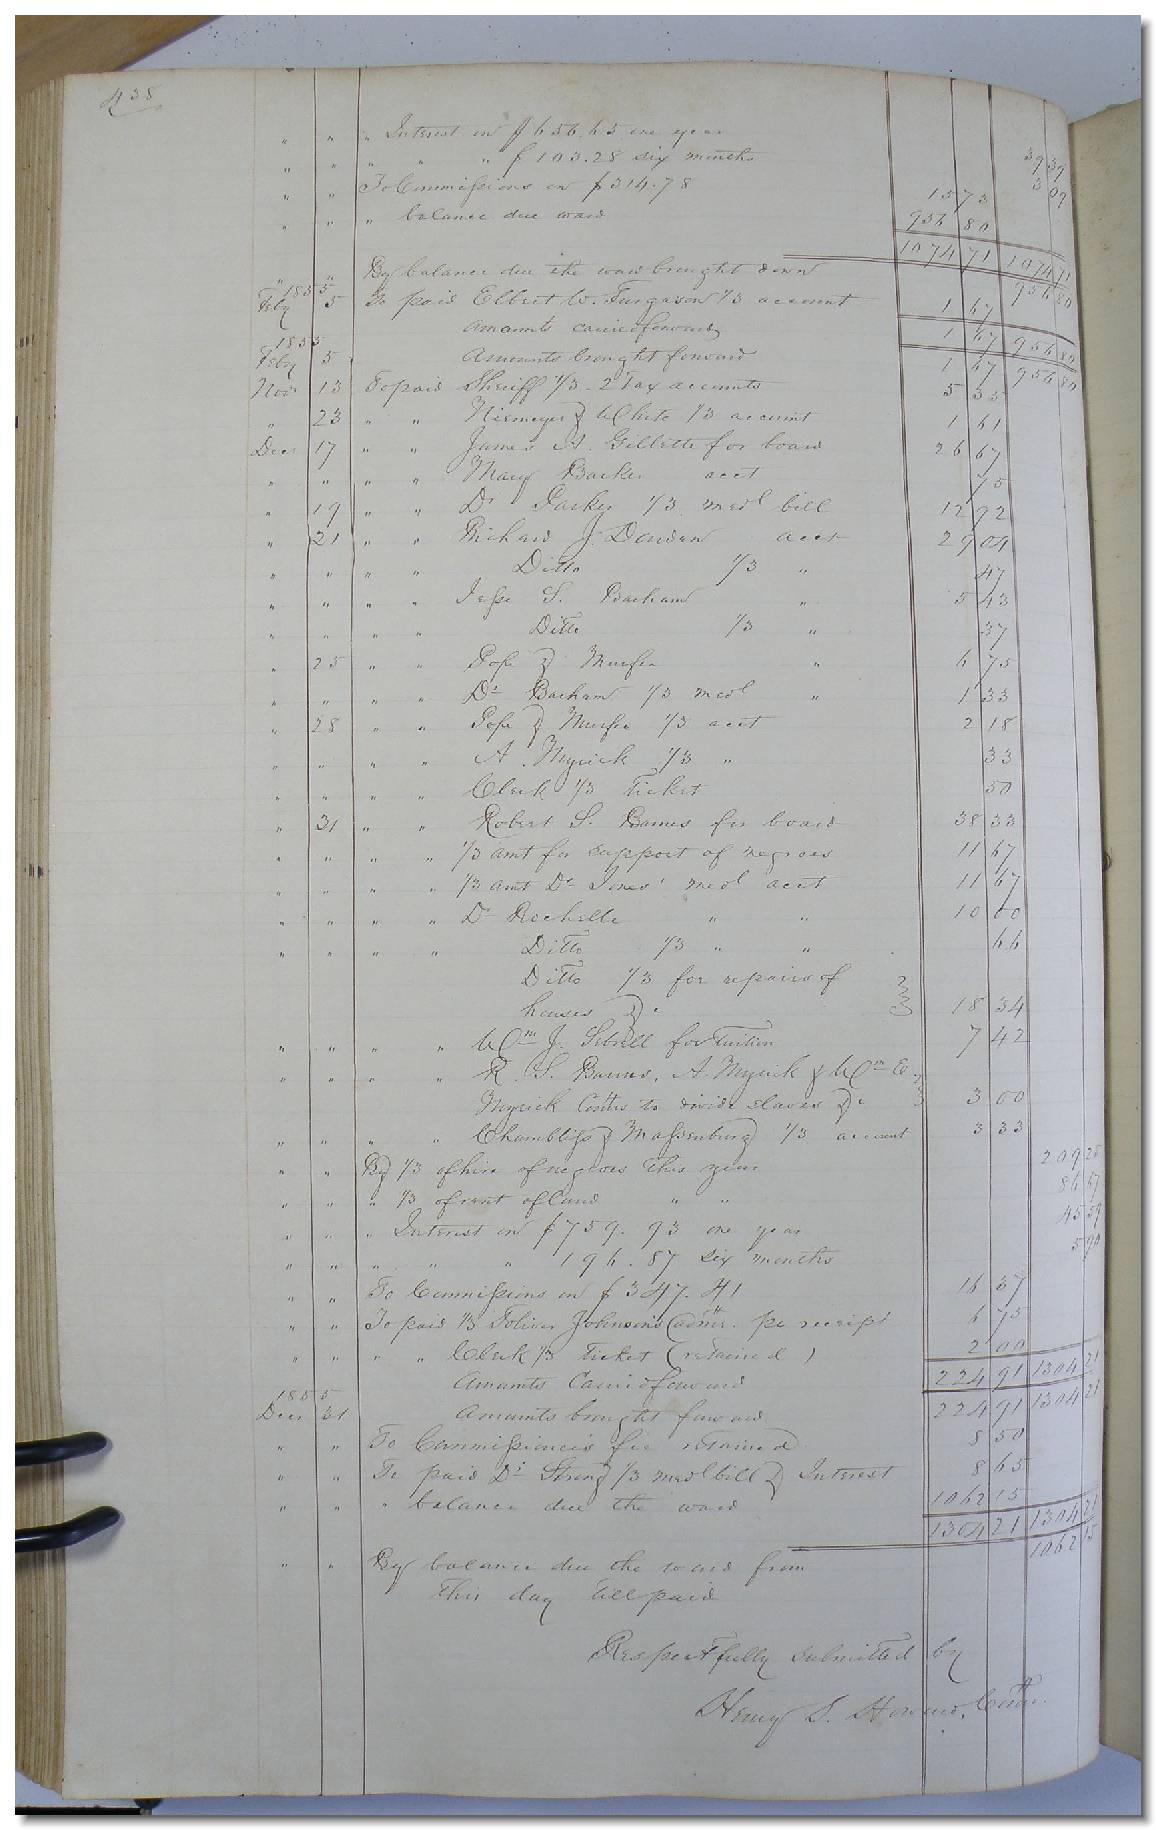 438
" " " Interest on $656.65 one year 39 39
" " " " " $103.28 six months 3 09
" " To Commissions on $314.78 15 73
" " " balance due ward 956 80
1074 71 1074 71
" " By balance due the ward brought down 956 80
1855
Feby 5 To paid Elbert W. Furgason 1/3 account 1 67
Amounts carried forward 1 67 956 80
1855
Feby 5 Amounts brought forward 1 67 956 80
Nov 13 To paid Sheriff 1/3 - 2 Tax accounts 5 33
" 23 " " Niemeyer & White 1/3 account 1 61
Decr 17 " " James A. Gillette for board 26 67
" " " " Mary Barker acct 75
" 19 " " Dr Parker 1/3 medl bill 12 92
" 21 " " Richard J. Darden acct 29 04
" " " " Ditto 1/3 " 47
" " " " Jesse S. Barham " 5 43
" " " " Ditto 1/3 " 37
" 25 " " Pope & Murfee " 6 75
" " " " Dr Barham 1/3 medl " 1 33
" 28 " " Pope & Murfee 1/3 acct 2 18
" " " " A. Myrick 1/3 " 33
" " " " Clerk 1/3 Ticket 50
" 31 " " Robert S. Barnes for board 38 33
" " " " 1/3 amt for support of negroes 11 67
" " " " 1/3 amt Dr Jones' medl acct 11 67
" " " " Dr Rochelle " " 10 00
" " " " Ditto 1/3 " " 66
Ditto 1/3 for repairs of
houses &c 18 34
" " " " Wm J. Sebrell for Tuition 7 42
" " " " R. S. Barnes, A. Myrick & Wm E.
Myrick Comrs to divide slaves &c 3 00
" " " " Chambliss & Massenburg 1/3 account 3 33
" " By 1/3 of hire of negroes this year 209 25
" " " 1/3 of rent of land " " 86 67
" " " Interest on $759.93 one year 45 59
" " " " " 196.87 six months 5 90
" " To Commissions on $347.41 16 37
" " To paid 1/3 Toliver Johnson's admr. pr receipt 6 75
" " " " Clerk 1/3 Ticket (retained) 2 00
Amounts Carried forward 224 91 1304 21
1855
Decr 31 Amounts brought forward 224 91 1304 21
" " To Commissioner's fee retained 8 50
" " To paid Dr String 1/3 medl bill & Interest 8 65
" " " balance due the ward 1062 15
1304 21 1304 21
" " By balance due the ward from 1062 15
this day till paid
Respectfully submitted by
Henry S. Howard,